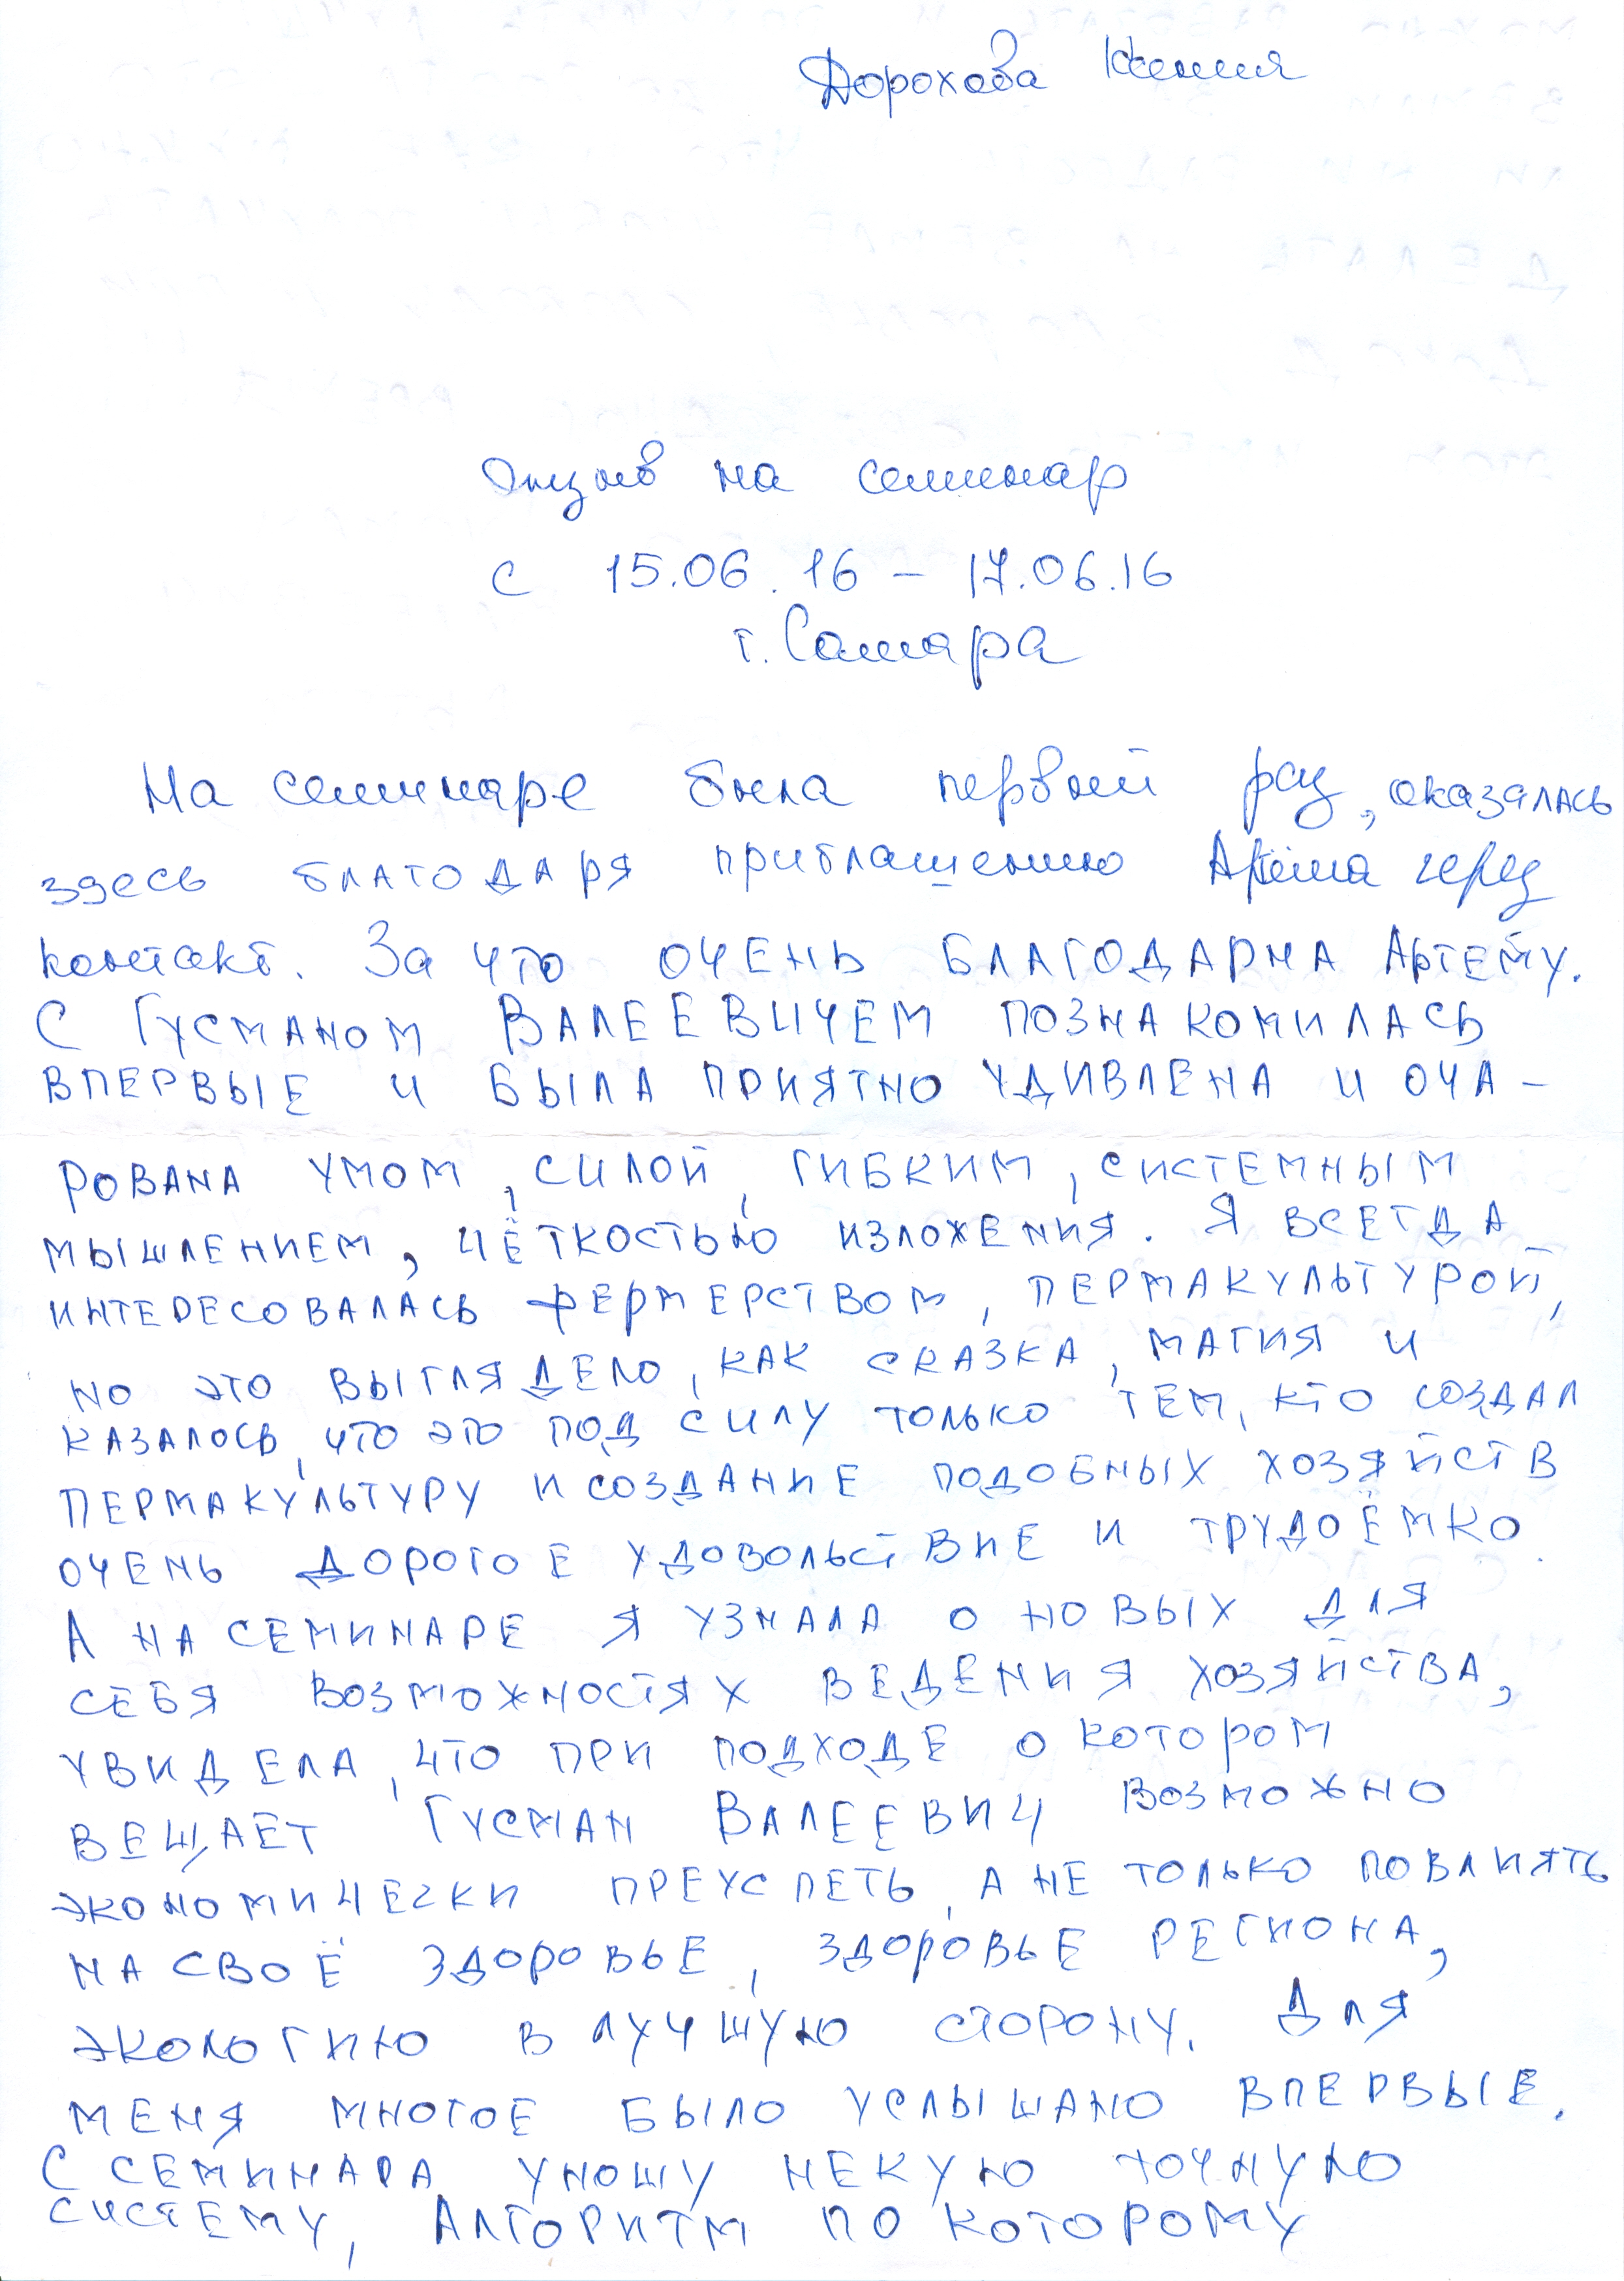 Дорохова Ксения
Отзыв на семинар
с 15.06.16 – 17.06.16
г. Самара
На семинаре была первый раз, оказалась
здесь благодаря приглашению Артёма через
контакт. За что очень БЛАГОДАРНА АРТЕМУ.
С ГУСМАНОМ ВАЛЕЕВИЧЕМ ПОЗНАКОМИЛАСЬ
ВПЕРВЫЕ И БЫЛА ПРИЯТНО УДИВЛЕНА И ОЧА-
РОВАНА УМОМ, СИЛОЙ, ГИБКИМ, СИСТЕМНЫМ
МЫШЛЕНИЕМ, ЧЁТКОСТЬЮ ИЗЛОЖЕНИЯ. Я ВСЕГДА
ИНТЕРЕСОВАЛАСЬ ФЕРМЕРСТВОМ, ПЕРМАКУЛЬТУРОЙ,
НО ЭТО ВЫГЛЯДЕЛО, КАК СКАЗКА, МАГИЯ И
КАЗАЛОСЬ, ЧТО ЭТО ПОД СИЛУ ТОЛЬКО ТЕМ, КТО СОЗДАЛ
ПЕРМАКУЛЬТУРУ И СОЗДАНИЕ ПОДОБНЫХ ХОЗЯЙСТВ
ОЧЕНЬ ДОРОГОЕ УДОВОЛЬСТВИЕ И ТРУДОЁМКО.
А НА СЕМИНАРЕ Я УЗНАЛА О НОВЫХ ДЛЯ
СЕБЯ ВОЗМОЖНОСТЯХ ВЕДЕНИЯ ХОЗЯЙСТВА,
УВИДЕЛА, ЧТО ПРИ ПОДХОДЕ О КОТОРОМ
ВЕЩАЕТ ГУСМАН ВАЛЕЕВИЧ ВОЗМОЖНО
ЭКОНОМИЧЕСКИ ПРЕУСПЕТЬ, А НЕ ТОЛЬКО ПОВЛИЯТЬ
НА СВОЁ ЗДОРОВЬЕ, ЗДОРОВЬЕ РЕГИОНА,
ЭКОЛОГИЮ В ЛУЧШУЮ СТОРОНУ. ДЛЯ
МЕНЯ МНОГОЕ БЫЛО УСЛЫШАНО ВПЕРВЫЕ.
С СЕМИНАРА УНОШУ НЕКУЮ ТОЧНУЮ
СИСТЕМУ, АЛГОРИТМ ПО КОТОРОМУ